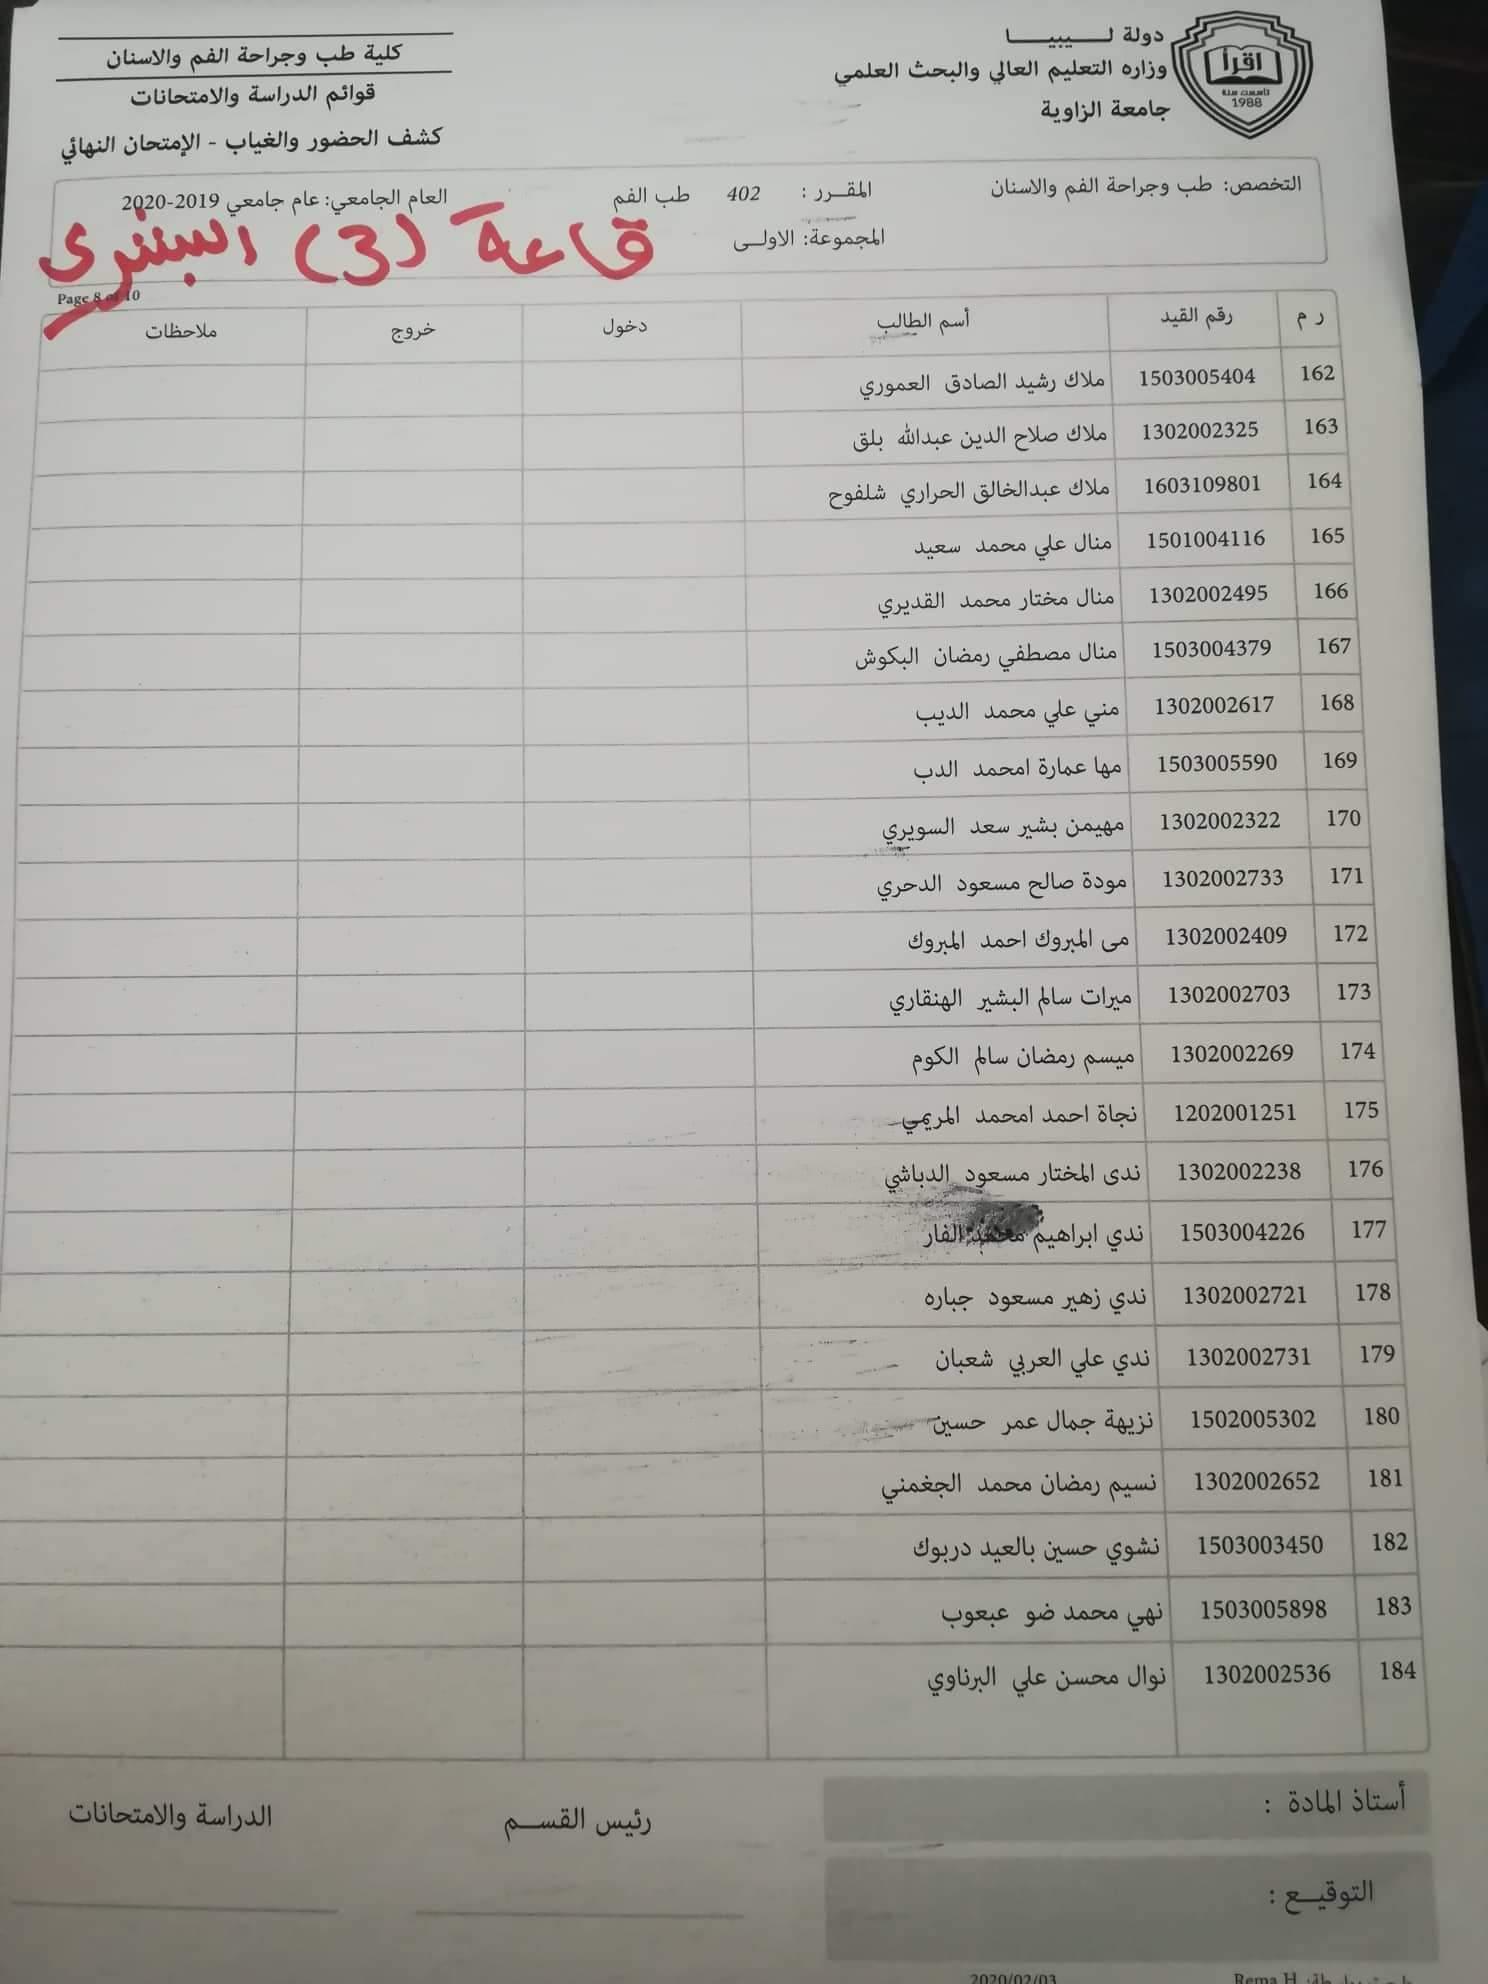 دولة لـــــيبيـــــا
وزاره التعليم العالي والبحث العلمي
جامعة الزاوية
اقرأ
تأسست سنة
1988
كلية طب وجراحة الفم والاسنان
قوائم الدراسة والامتحانات
كشف الحضور والغياب - الإمتحان النهائي
التخصص: طب وجراحة الفم والاسنان المقــرر : 402 طب الفم العام الجامعي: عام جامعي 2019-2020
المجموعة: الاولــى
قاعة (3) اليسرى
Page 8 of 10
ر م رقم القيد أسم الطالب دخول خروج ملاحظات
162 1503005404 ملاك رشيد الصادق العموري
163 1302002325 ملاك صلاح الدين عبدالله بلق
164 1603109801 ملاك عبدالخالق الحراري شلفوح
165 1501004116 منال علي محمد سعيد
166 1302002495 منال مختار محمد القديري
167 1503004379 منال مصطفي رمضان البكوش
168 1302002617 مني علي محمد الديب
169 1503005590 مها عمارة امحمد الدب
170 1302002322 مهيمن بشير سعد السويري
171 1302002733 مودة صالح مسعود الدحري
172 1302002409 مى المبروك احمد المبروك
173 1302002703 ميرات سالم البشير الهنقاري
174 1302002269 ميسم رمضان سالم الكوم
175 1202001251 نجاة احمد امحمد المريمي
176 1302002238 ندى المختار مسعود الدباشي
177 1503004226 ندي ابراهيم محمد الفار
178 1302002721 ندي زهير مسعود جباره
179 1302002731 ندي علي العربي شعبان
180 1502005302 نزيهة جمال عمر حسين
181 1302002652 نسيم رمضان محمد الجغمني
182 1503003450 نشوي حسين بالعيد دربوك
183 1503005898 نهي محمد ضو عبعوب
184 1302002536 نوال محسن علي البرناوي
أستاذ المادة :
رئيس القســم
الدراسة والامتحانات
التوقيــع :
Rema H 2020/02/03